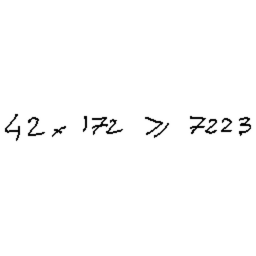 42 × 172 ⩾ 7223